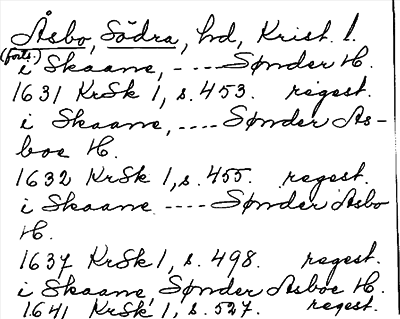 Åsbo, Södra, hd, Krist. l.
(forts.)
i Skaane, - .... Sønder H.
1631 KrSk 1, s. 453. regest.
i Skaane, .... Sønder As-
boe H.
1632 KrSk 1, s. 455. regest.
i Skaane .... Sønder Asbo
H.
1637 KrSk 1, s. 498. regest.
i Skaane, Sønder Asboe H.
1641 KrSk 1, s. 527. regest.